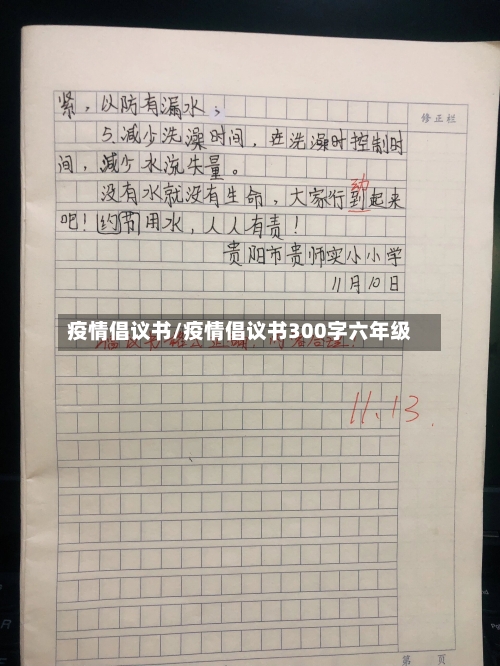 紧，以防有漏水；
修正栏
5.减少洗澡时间，在洗澡时控制时
间，减少水流失量。
没有水就没有生命，大家行到起来
动
吧！约节用水，人人有责！
贵阳市贵师实小小学
11月10日
疫情倡议书/疫情倡议书300字六年级
11.13.
第 页